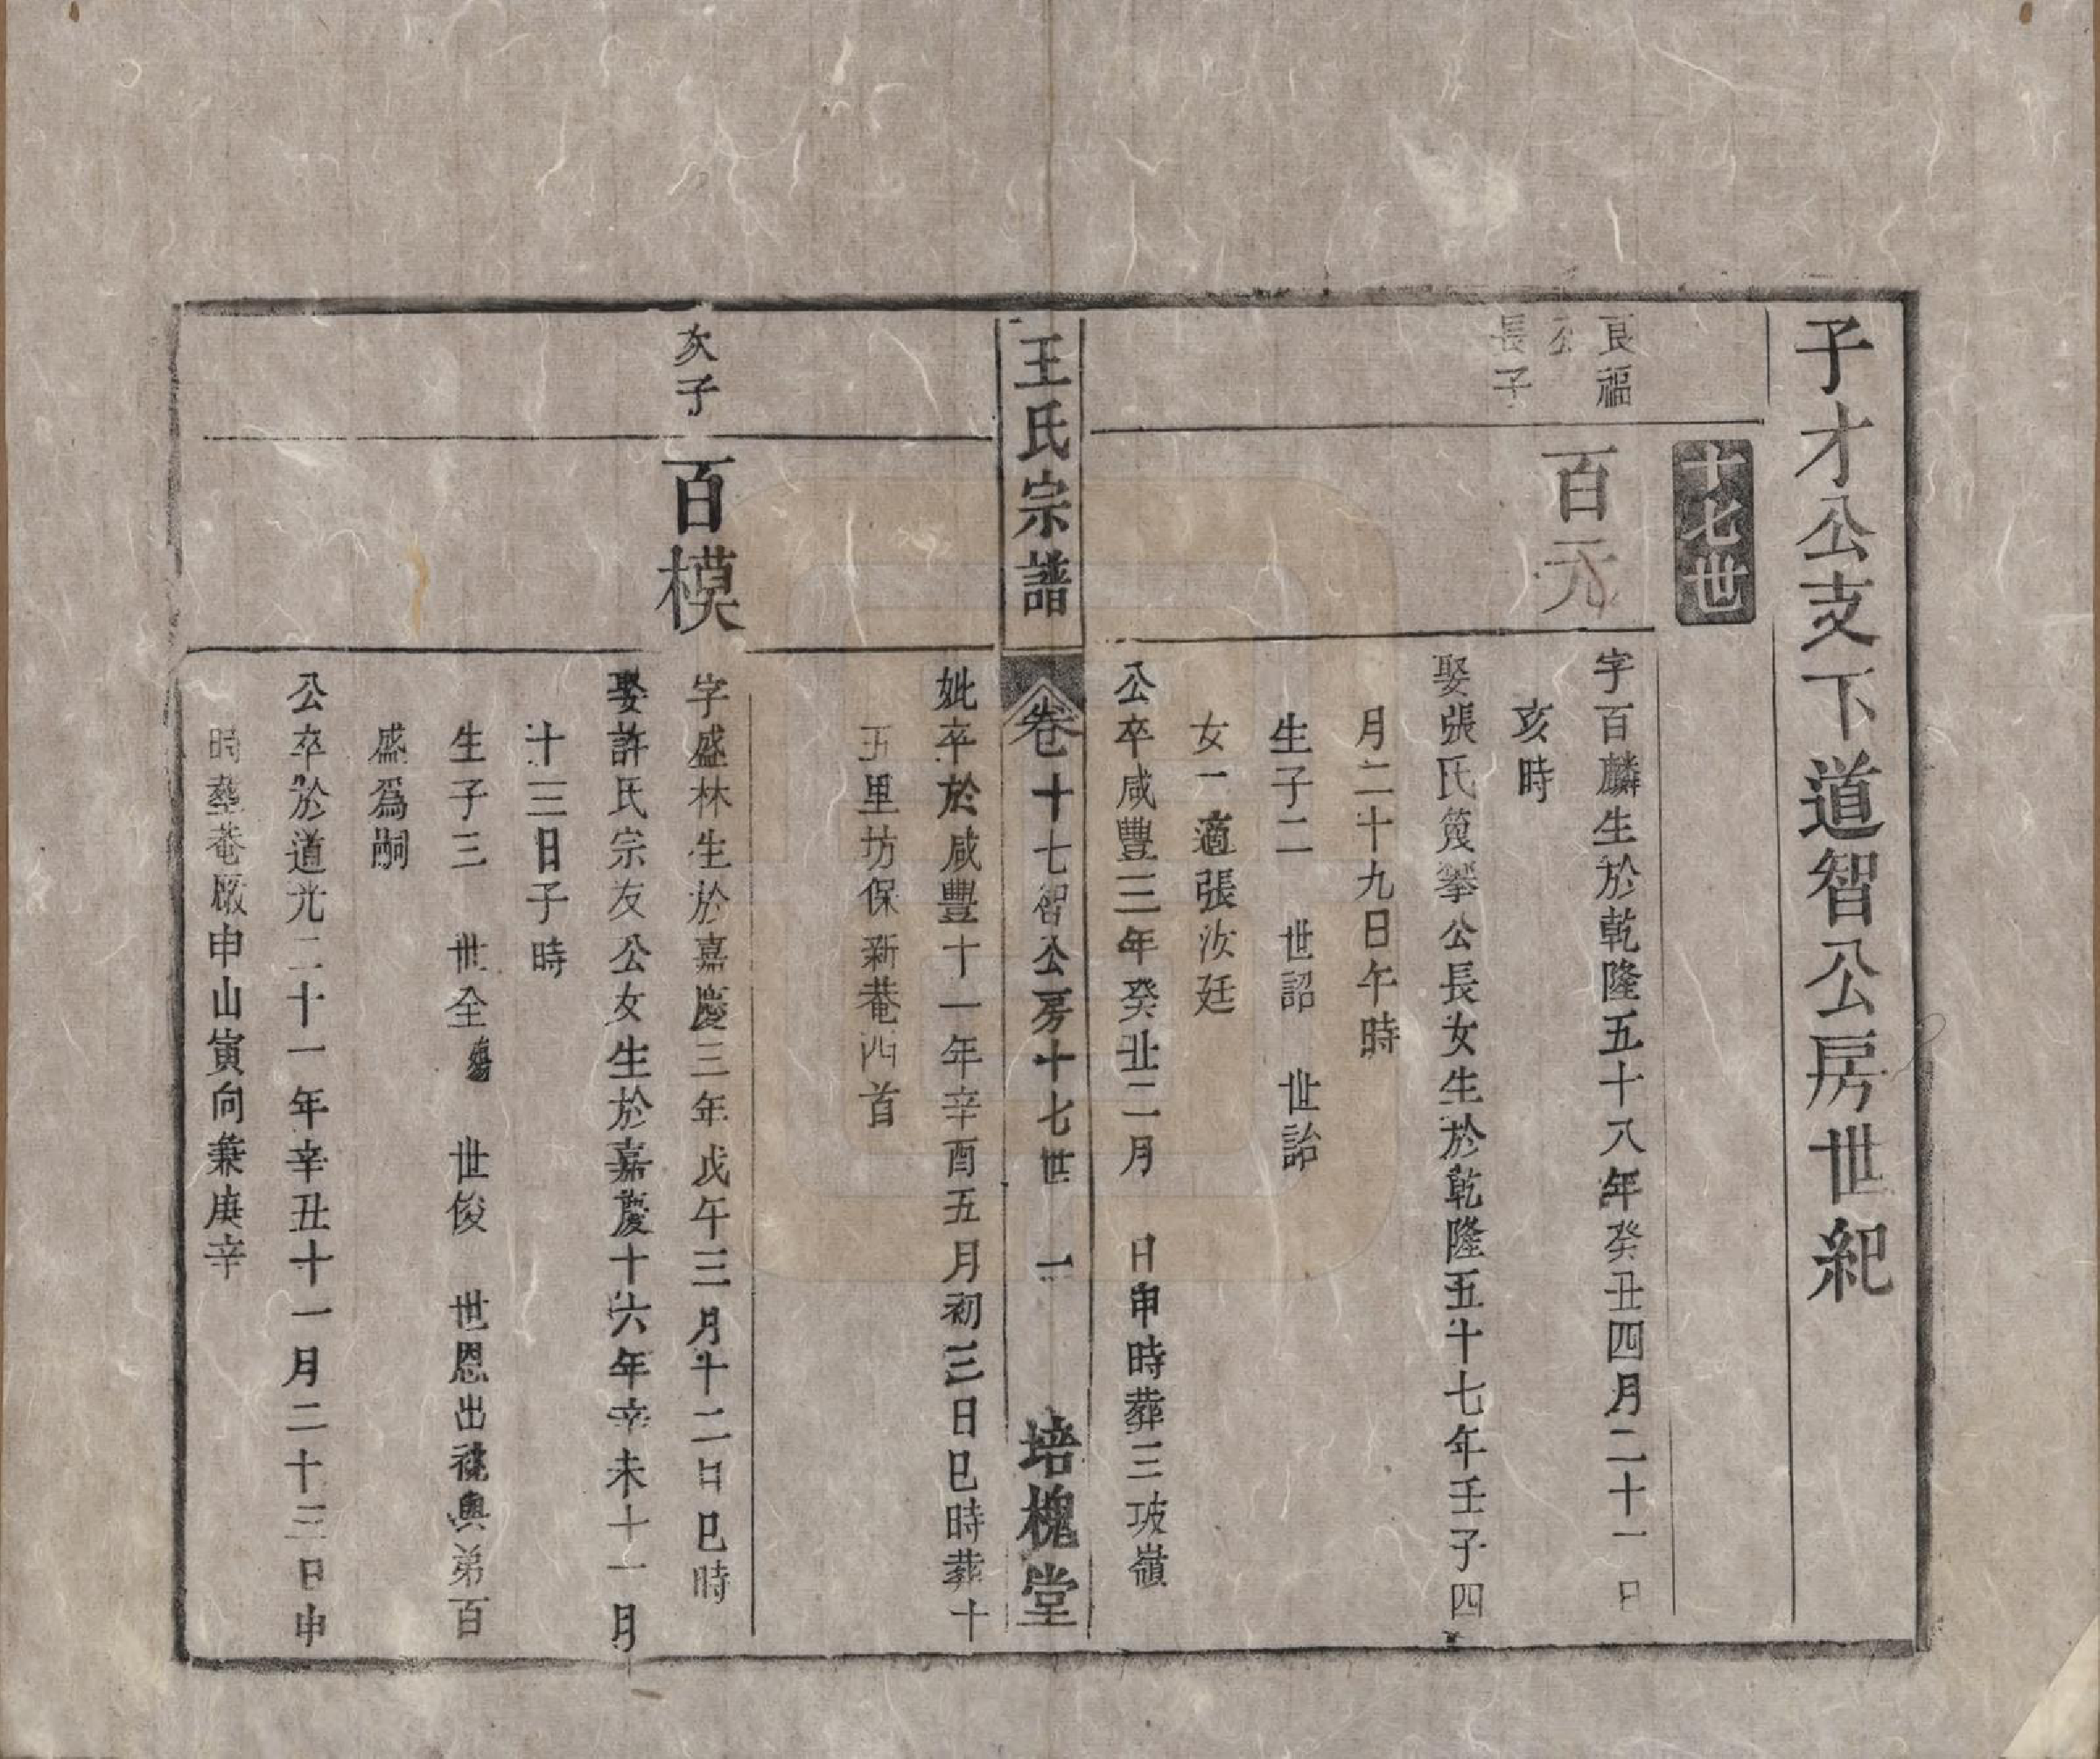 子才公支下道智公房世紀
十七世
良福
公
長子
百元
字百麟生於乾隆五十八年癸丑四月二十一日
亥時
娶張氏筧攀公長女生於乾隆五十七年壬子四
月二十九日午時
生子二 世詔 世詒
女一適張汝廷
公卒咸豐三年癸丑二月 日申時葬三坡嶺
王氏宗譜
卷十七智公房十七世 一
培槐堂
妣卒於咸豐十一年辛酉五月初三日巳時葬十
五里坊保新菴西首
次子
百模
字盛林生於嘉慶三年戊午三月十二日巳時
娶許氏宗友公女生於嘉慶十六年辛未十一月
十三日子時
生子三 世全殤 世俊 世恩出禠與弟百
盛爲嗣
公卒於道光二十一年辛丑十一月二十三日申
時葬菴厰申山寅向兼庚辛